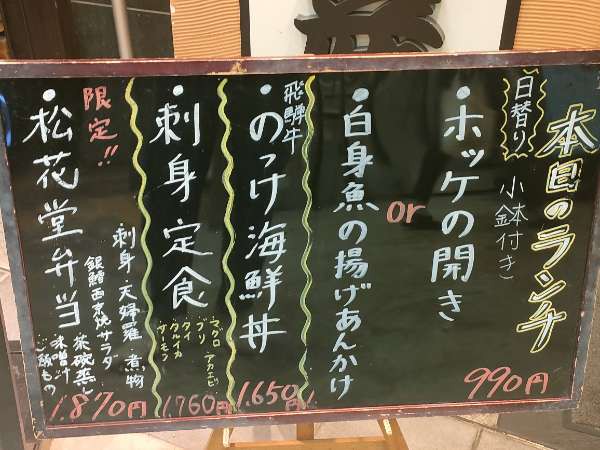 本日のランチ
日替り
小鉢付き
・ホッケの開き
or
・白身魚の揚げあんかけ
990円
飛騨牛
・のっけ海鮮丼
1,650円
・刺身定食
マグロ アカエビ
ブリ
タイ
クルイカ
サーモン
1,760円
限定!!
・松花堂弁当
刺身・天婦羅 煮物
銀鱈西京焼サラダ
茶碗蒸し
味噌汁
ご飯もの
1,870円